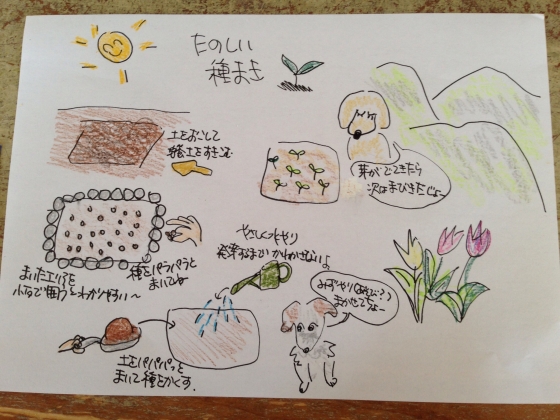 たのしい
種まき
土をおこして
培養土をすきこむ
芽がでてきたら
次はまびきだじょ〜
種をパラパラと
まいてね
まいたエリアを
小石で囲うとわかりやすい〜
やさしく水やり
発芽するまでかわかさないよ
みずやり(あそび?)
まかせてちょー
土をパパパッと
まいて種をかくす.